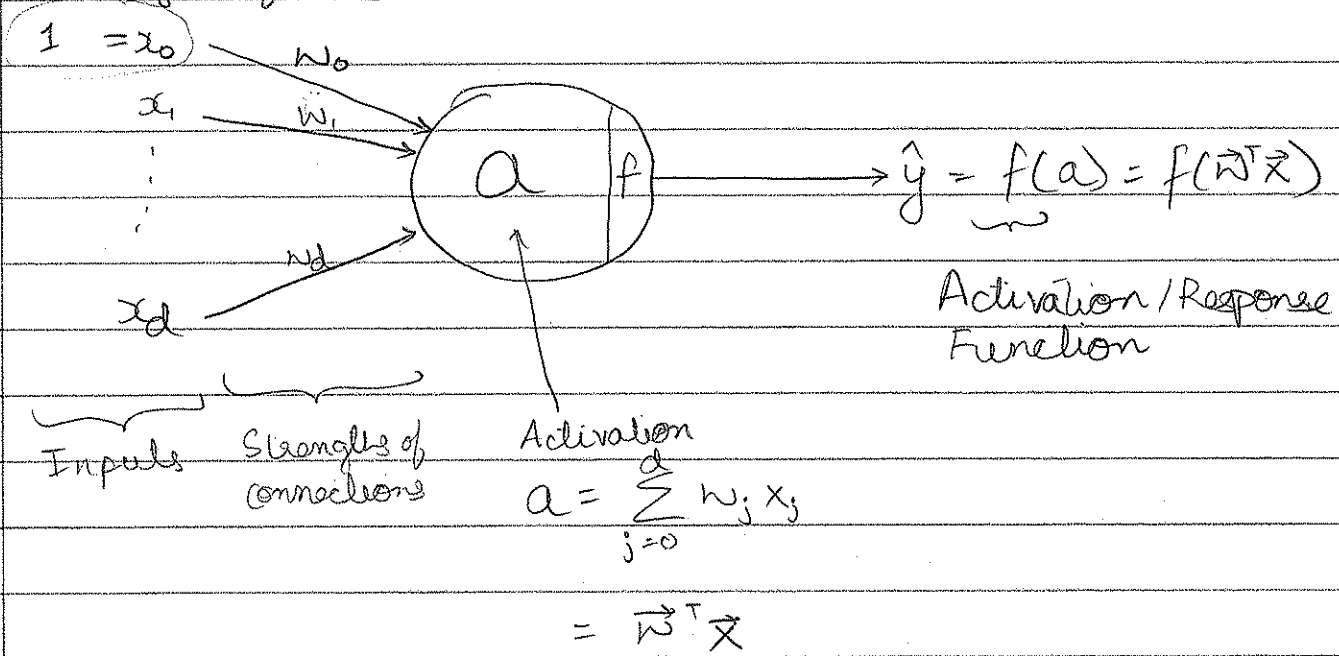 1 = x₀
w₀
x₁
w₁
a
f
ŷ = f(a) = f(w⃗ᵀx⃗)
wd
xd
Activation / Response
Function
Inputs
Strengths of
connections
Activation
a = ∑ⱼ₌₀ᵈ wⱼ xⱼ
= w⃗ᵀ x⃗